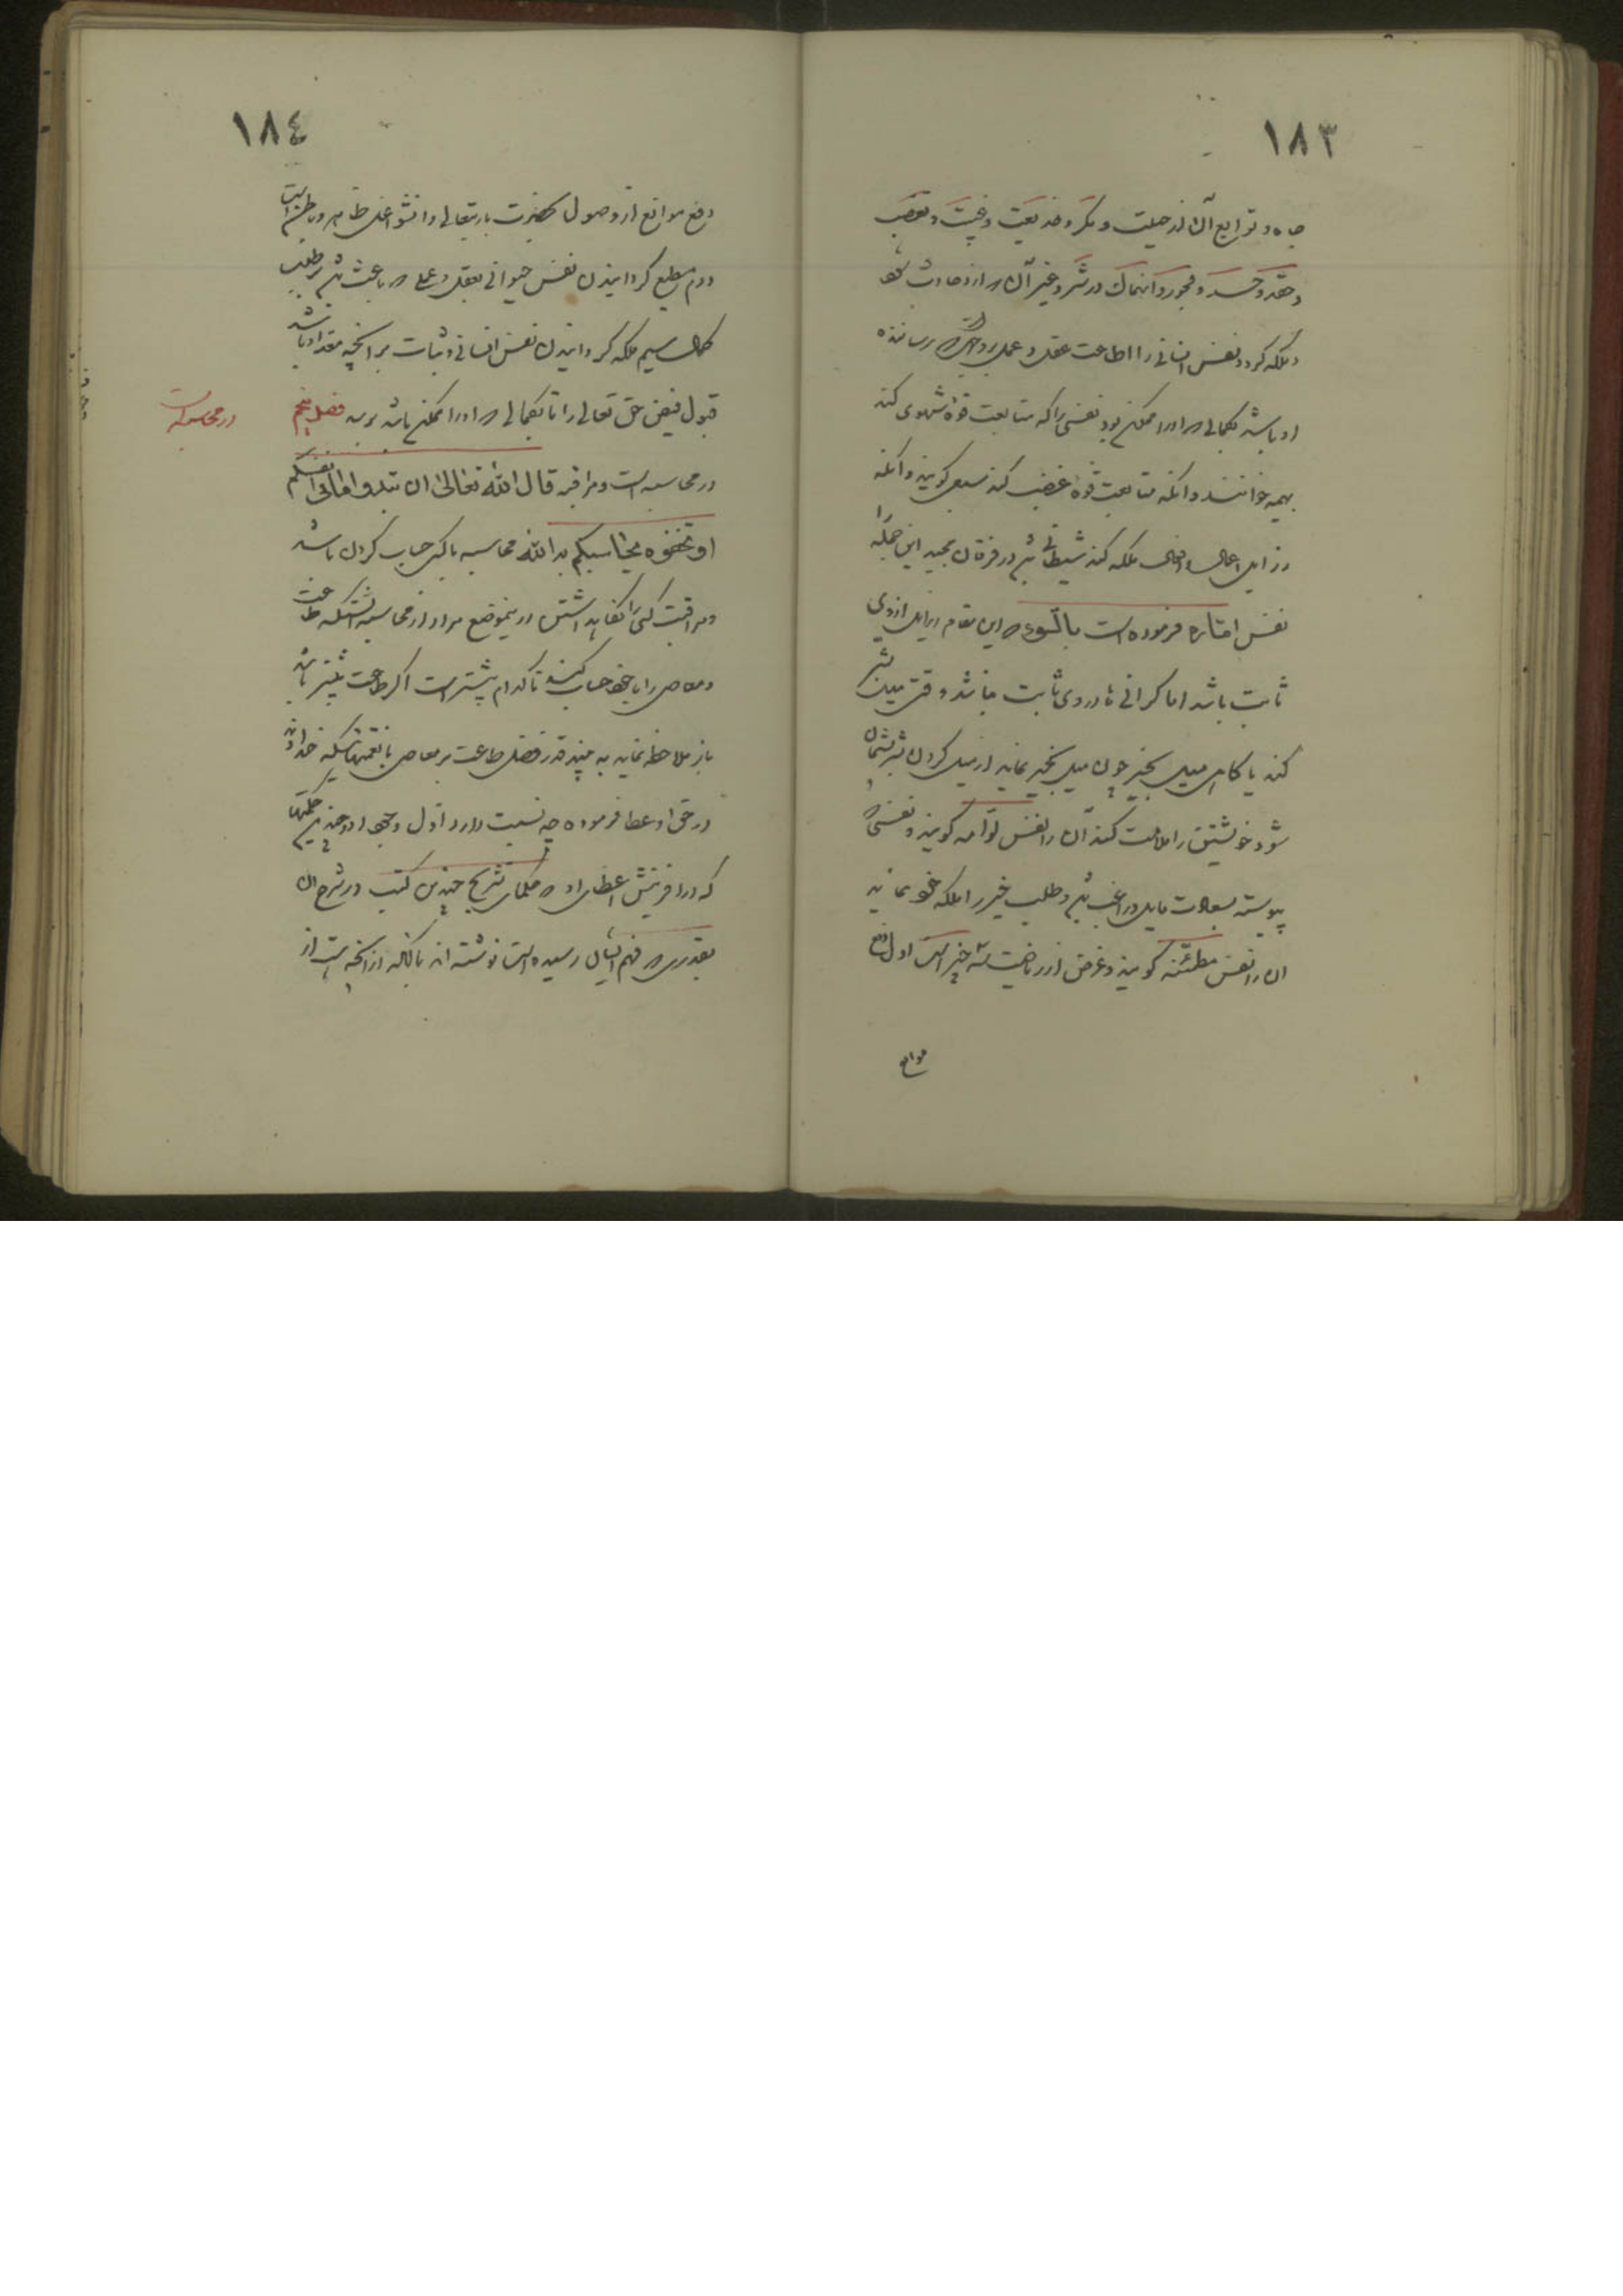 ١٨٣
جاه و توابع آن از حیلت و مکر و خدیعت و غیبت و تعصب
و حقد و حسد و فجور و انهماک در شر و غیر آن که از او حادث شود
و ملکه گردد نفس انسانی را اطاعت عقل و عملی بر وجهی که رساننده
او باشد بکمالی که او را ممکن بود نفسی را که متابعت قوه شهوی کند
بهیمه خوانند و آنکه متابعت قوه غضب کند سبعی گویند و آنکه
رذایل اعمال و افعال ملکه کند شیطانی و در فرقان مجید این جمله را
نفس اماره فرموده است بالسوء که این مقام رذایل از وی
ثابت باشد اما گر اینها در وی ثابت نباشد وقتی میل بشر
کند یا گاهی میل بخیر چون میل بخیر نماید از میل کردن بشر پشیمان
شود و خویشتن را ملامت کند آن را نفس لوامه گویند و نفسی که
پیوسته بسعادت مایل و راغب و طلب خیر را ملکه خود نماید
آن را نفس مطمئنه گویند و غرض از ریاضت سه چیز است اول رفع
موانع
١٨٤
رفع موانع از وصول بحضرت باریتعالی و آن شواغل ظاهر و باطن است
دوم مطیع گردانیدن نفس حیوانی بعقل و عملی که باعث بر طلب
کمال سیم ملکه گردانیدن نفس انسانی و ثبات بر آنچه معد او باشد
قبول فیض حق تعالی را تا بکمالی که او را ممکن باشد برسد فصل پنجم
در محاسبه است
در محاسبه است و مراقبه قال الله تعالی ان تبدوا ما فی انفسکم
او تخفوه یحاسبکم به الله محاسبه با کسی حساب کردن باشد
و مراقبت کسی را نگاهداشتن در ینموضع مراد از محاسبه آنستکه طاعت
و معاصی را با خود حساب کند تا کدام بیشتر است اگر طاعت بیشتر باشد
باز ملاحظه نماید به چند قدر فضل طاعت بر معاصی با نعمتهائیکه خداوند
در حق او عطا فرموده چه نسبت دارد اول وجود او و چندین حکمتها
که در آفرینش اعضای او که حکمای تشریح چندین کتب در شرح آن
بقدری که فهم ایشان رسیده است نوشته اند با آنکه از آنچه هست از